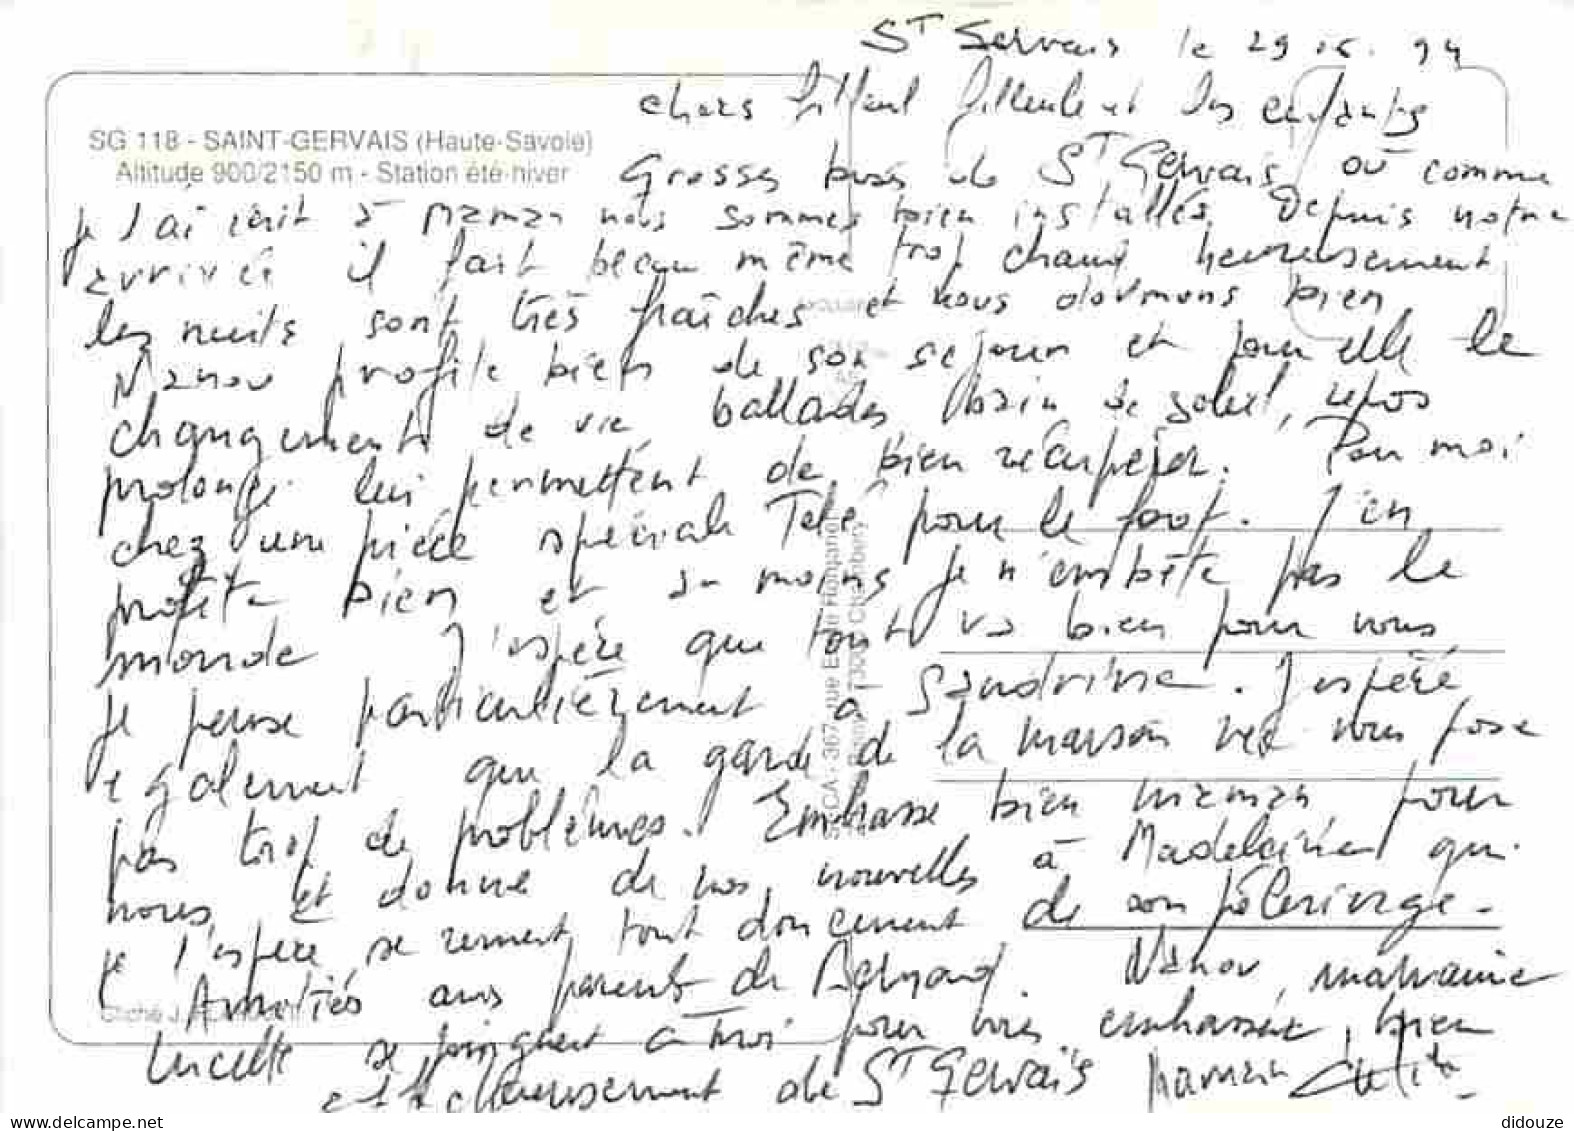 St Gervais le 29 94
chers filleul filleule et les enfants
SG 118 - SAINT-GERVAIS (Haute-Savoie)
Altitude 900/2150 m - Station été-hiver
Grosses bises de St Gervais où comme
je l'ai écrit à maman nous sommes bien installés. Depuis notre
arrivée il fait beau même trop chaud, heureusement
les nuits sont très fraîches et nous dormons bien
Nanou profite bien de son séjour et pour elle le
changement de vie, ballades, bain de soleil, repos
prolongé lui permettent de bien récupérer. Pour moi
chez une pièce spéciale Télé pour le foot. J'en
profite bien et au moins je n'embête pas le
monde J'espère que tout va bien pour vous
Je pense particulièrement à Sandrine. J'espère
également que la garde de la maison ne vous pose
pas trop de problèmes. Embrasse bien maman pour
nous, et donne de nos nouvelles à Madeleine qui
je l'espère, se remet tout doucement de son pèlerinage.
Amitiés aux parents de Raymond. Nanou, marraine
Lucette se joignent à moi pour vous embrasser bien
affectueusement de St Gervais Parrain
delcampe.net
didouze